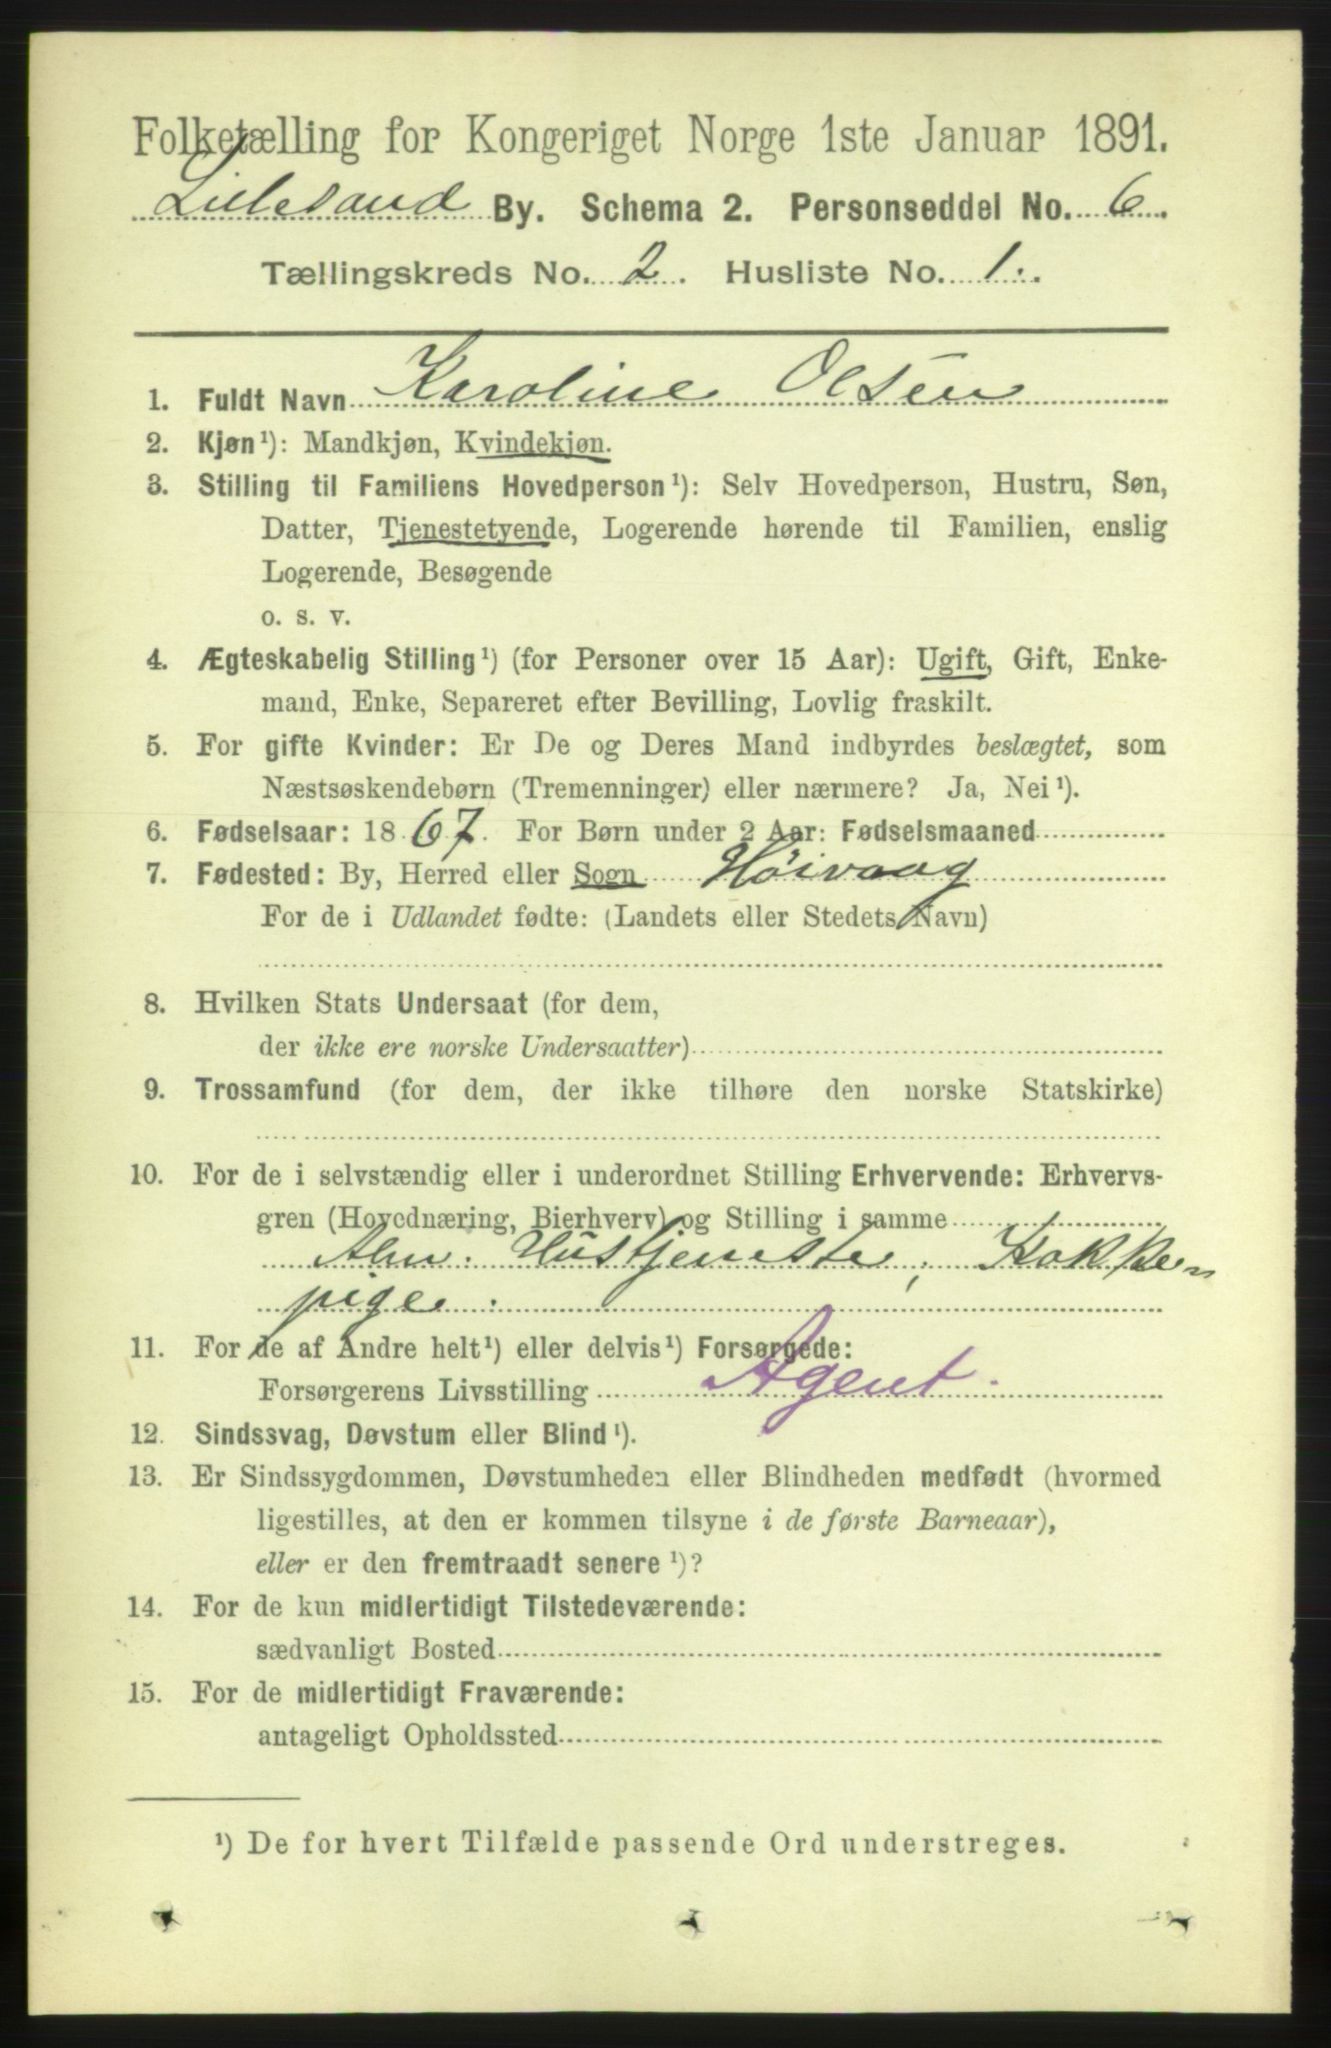 Folketælling for Kongeriget Norge 1ste Januar 1891.
Lillesand By. Schema 2. Personseddel No. 6.
Tællingskreds No. 2. Husliste No. 1.
1. Fuldt Navn Karoline Olsen
2. Kjøn¹): Mandkjøn, Kvindekjøn.
3. Stilling til Familiens Hovedperson¹): Selv Hovedperson, Hustru, Søn,
Datter, Tjenestetyende, Logerende hørende til Familien, enslig
Logerende, Besøgende
o. s. v.
4. Ægteskabelig Stilling¹) (for Personer over 15 Aar): Ugift, Gift, Enke-
mand, Enke, Separeret efter Bevilling, Lovlig fraskilt.
5. For gifte Kvinder: Er De og Deres Mand indbyrdes beslægtet, som
Næstsøskendebørn (Tremenninger) eller nærmere? Ja, Nei¹).
6. Fødselsaar: 1867. For Børn under 2 Aar: Fødselsmaaned
7. Fødested: By, Herred eller Sogn Høivaag
For de i Udlandet fødte: (Landets eller Stedets Navn)
8. Hvilken Stats Undersaat (for dem,
der ikke ere norske Undersaatter)
9. Trossamfund (for dem, der ikke tilhøre den norske Statskirke)
10. For de i selvstændig eller i underordnet Stilling Erhvervende: Erhvervs-
gren (Hovednæring, Bierhverv) og Stilling i samme
Alm. Hustjeneste, Kokke-
pige.
11. For de af Andre helt¹) eller delvis¹) Forsørgede:
Forsørgerens Livsstilling Agent.
12. Sindssvag, Døvstum eller Blind¹).
13. Er Sindssygdommen, Døvstumheden eller Blindheden medfødt (hvormed
ligestilles, at den er kommen tilsyne i de første Barneaar),
eller er den fremtraadt senere¹)?
14. For de kun midlertidigt Tilstedeværende:
sædvanligt Bosted
15. For de midlertidigt Fraværende:
antageligt Opholdssted
¹) De for hvert Tilfælde passende Ord understreges.